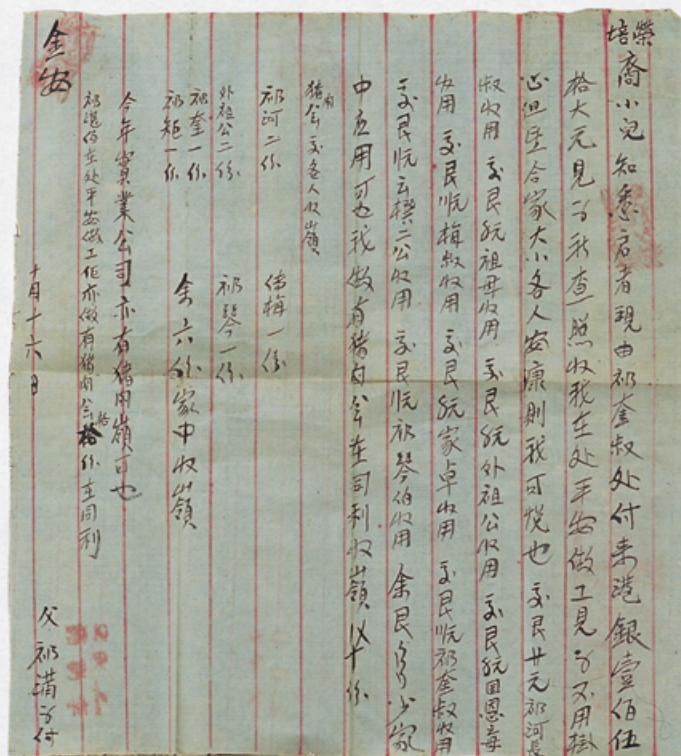 榮培裔小兒知悉启者現由祁奎叔处付来港銀壹佰伍
拾大元見字祈查照收我在处平安做工見字不用掛
心但望合家大小各人安康則我可悦也 交艮廿元祁河長
叔收用 交艮 祖母收用 交艮 外祖公收用 交艮 国恩毒
收用 交艮 梅叔收用 交艮 家卓收用 交艮 祁奎叔收用
交艮 云 二公收用 交艮 祁琴伯收用 余艮 家
中应用可也我做有猪肉会在司利收領 十份
猪肉会交各人收領
祁河二份 梅一份
外祖公二份 祁琴一份
祁奎一份
祁矩一份 余六份家中收領
今年實業公司亦有猪肉領可也
祁 伯在处平安做工佢亦做有猪肉会拾份在同利
金安
十月十六日
父祁满字付